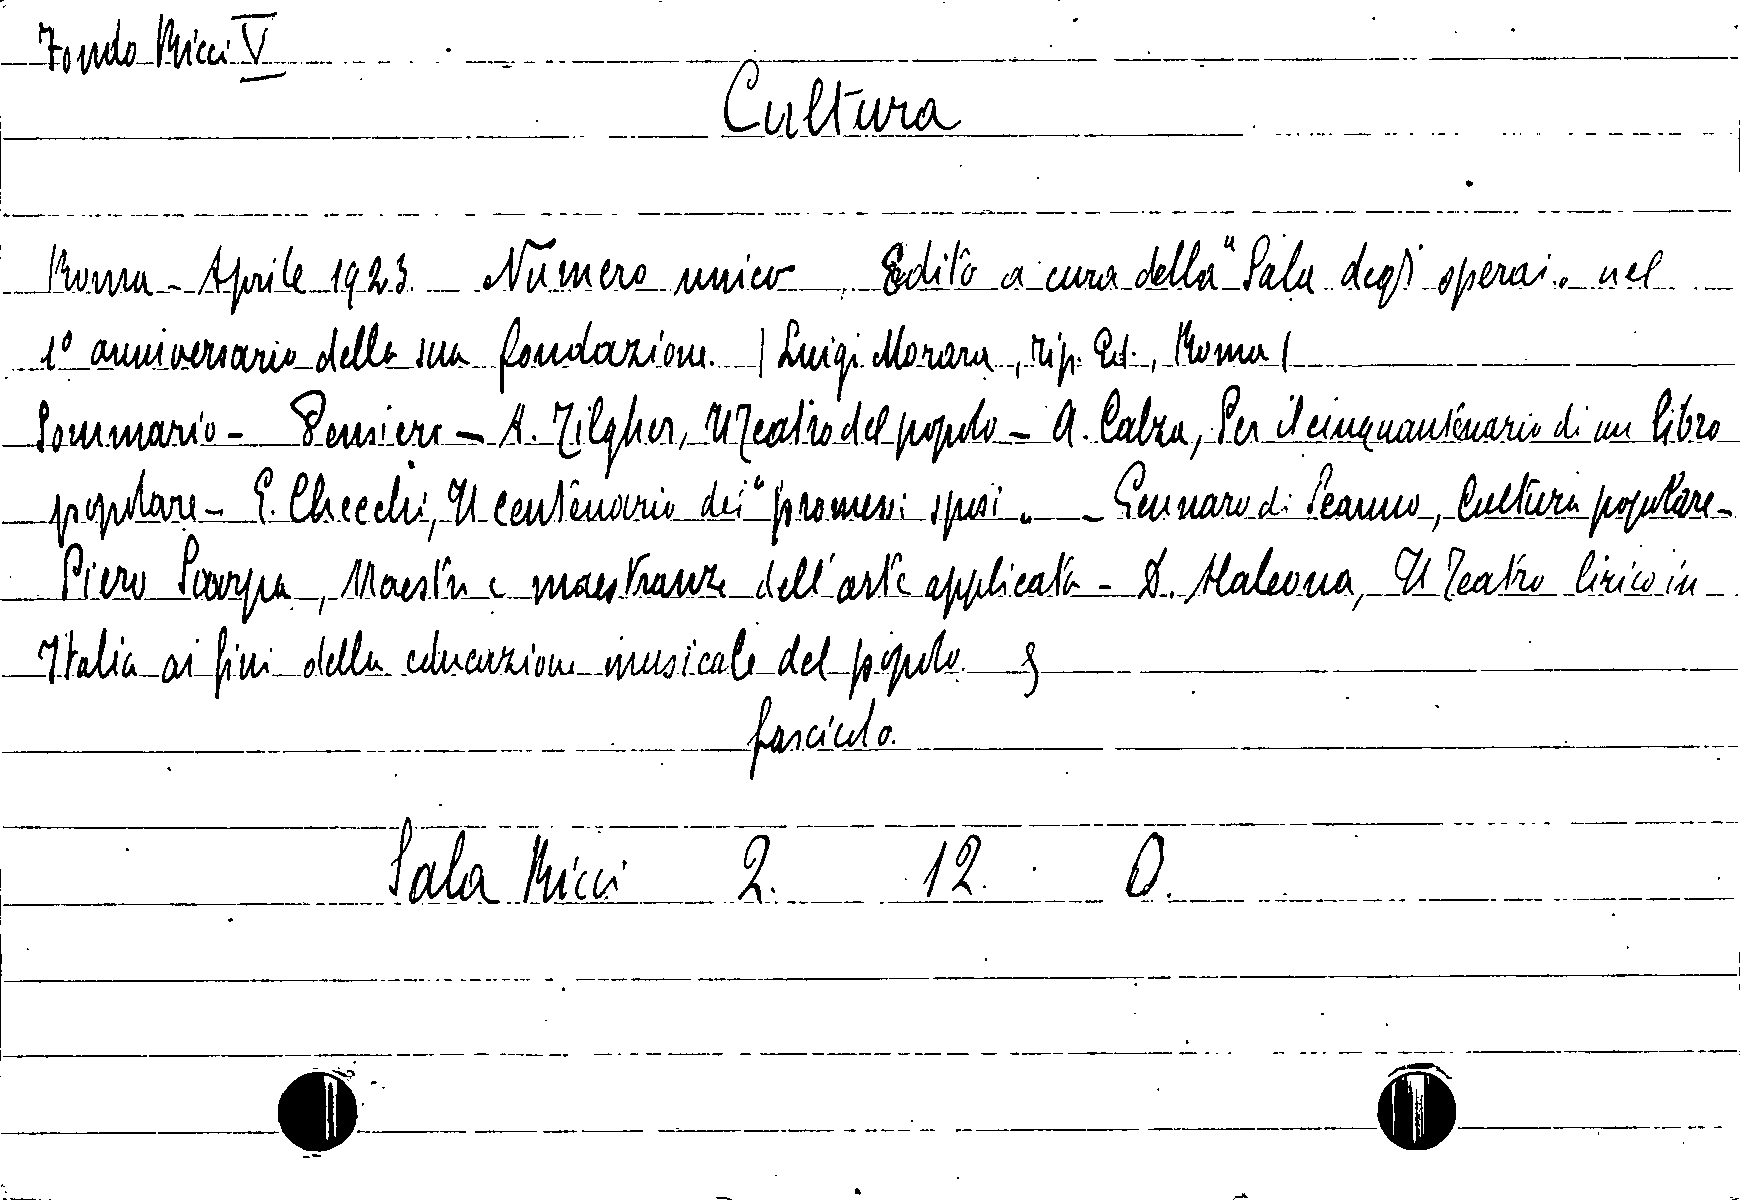 Fondo Ricci V
Cultura
Roma - Aprile 1923. Numero unico. Edito a cura della "Sala degli operai" nel
1° anniversario della sua fondazione. (Luigi Morara, Tip. Ed., Roma)
Sommario - Pensiero - A. Tilgher, Il Teatro del popolo - A. Calza, Per il cinquantenario di un libro
popolare - E. Checchi, Il centenario dei "promessi sposi" - Gennaro di Scanno, Cultura popolare -
Piero Scarpa, Maestri e maestranze dell'arte applicata - D. Alaleona, Il Teatro lirico in
Italia ai fini della educazione musicale del popolo.
fascicolo.
Sala Ricci 2. 12. O.